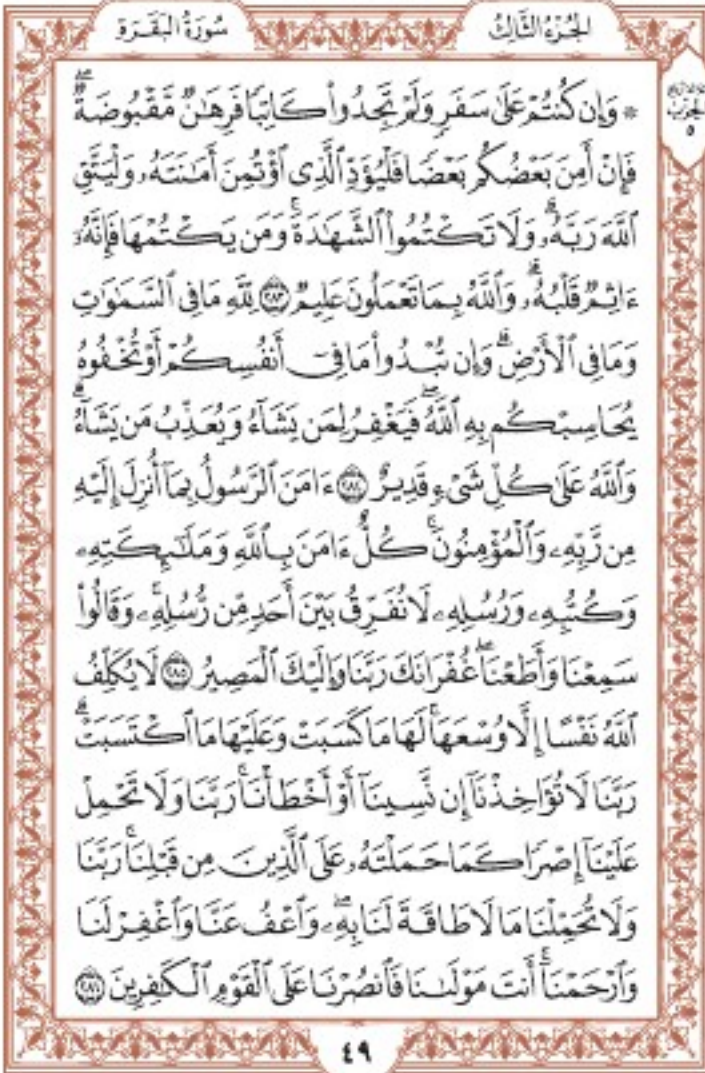 سُورَةُ البَقَرَةِ
الجُزْءُ الثَّالِثُ
الحِزْب
٥
۞ وَإِن كُنتُمْ عَلَىٰ سَفَرٍ وَلَمْ تَجِدُواْ كَاتِبًا فَرِهَٰنٌ مَّقْبُوضَةٌۖ
فَإِنْ أَمِنَ بَعْضُكُم بَعْضًا فَلْيُؤَدِّ ٱلَّذِى ٱؤْتُمِنَ أَمَٰنَتَهُۥ وَلْيَتَّقِ
ٱللَّهَ رَبَّهُۥۗ وَلَا تَكْتُمُواْ ٱلشَّهَٰدَةَۚ وَمَن يَكْتُمْهَا فَإِنَّهُۥٓ
ءَاثِمٌ قَلْبُهُۥۗ وَٱللَّهُ بِمَا تَعْمَلُونَ عَلِيمٌ ۝٢٨٣ لِّلَّهِ مَا فِى ٱلسَّمَٰوَٰتِ
وَمَا فِى ٱلْأَرْضِۗ وَإِن تُبْدُواْ مَا فِىٓ أَنفُسِكُمْ أَوْ تُخْفُوهُ
يُحَاسِبْكُم بِهِ ٱللَّهُۖ فَيَغْفِرُ لِمَن يَشَآءُ وَيُعَذِّبُ مَن يَشَآءُۗ
وَٱللَّهُ عَلَىٰ كُلِّ شَىْءٍ قَدِيرٌ ۝٢٨٤ ءَامَنَ ٱلرَّسُولُ بِمَآ أُنزِلَ إِلَيْهِ
مِن رَّبِّهِۦ وَٱلْمُؤْمِنُونَۚ كُلٌّ ءَامَنَ بِٱللَّهِ وَمَلَٰٓئِكَتِهِۦ
وَكُتُبِهِۦ وَرُسُلِهِۦ لَا نُفَرِّقُ بَيْنَ أَحَدٍ مِّن رُّسُلِهِۦۚ وَقَالُواْ
سَمِعْنَا وَأَطَعْنَاۖ غُفْرَانَكَ رَبَّنَا وَإِلَيْكَ ٱلْمَصِيرُ ۝٢٨٥ لَا يُكَلِّفُ
ٱللَّهُ نَفْسًا إِلَّا وُسْعَهَاۚ لَهَا مَا كَسَبَتْ وَعَلَيْهَا مَا ٱكْتَسَبَتْۗ
رَبَّنَا لَا تُؤَاخِذْنَآ إِن نَّسِينَآ أَوْ أَخْطَأْنَاۚ رَبَّنَا وَلَا تَحْمِلْ
عَلَيْنَآ إِصْرًا كَمَا حَمَلْتَهُۥ عَلَى ٱلَّذِينَ مِن قَبْلِنَاۚ رَبَّنَا
وَلَا تُحَمِّلْنَا مَا لَا طَاقَةَ لَنَا بِهِۦۖ وَٱعْفُ عَنَّا وَٱغْفِرْ لَنَا
وَٱرْحَمْنَآۚ أَنتَ مَوْلَىٰنَا فَٱنصُرْنَا عَلَى ٱلْقَوْمِ ٱلْكَٰفِرِينَ ۝٢٨٦
٤٩